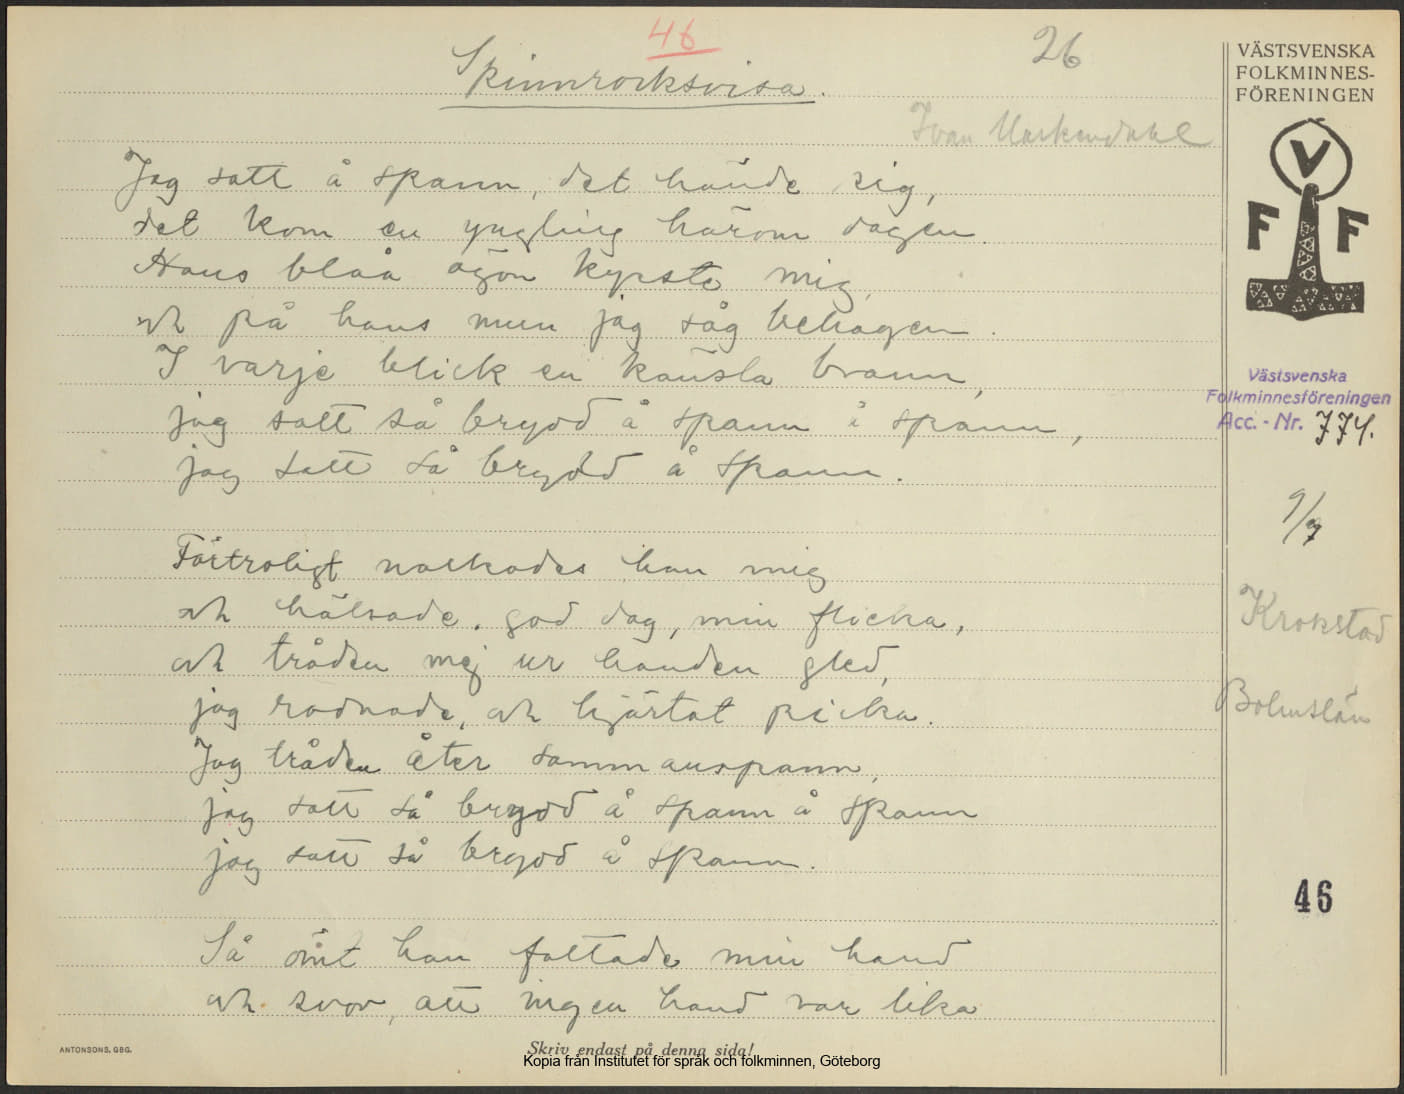 46
26
Spinnrocksvisa.
Ivan
Jag satt å spann, det hände sig,
det kom en yngling härom dagen.
Hans blåa ögon kysste mig,
och på hans mun jag såg behagen.
I varje blick en känsla brann,
jag satt så brydd å spann å spann,
jag satt så brydd å spann.
Förtroligt nalkades han mig
och hälsade, god dag, min flicka,
och tråden mej ur handen gled,
jag rodnade, och hjärtat picka.
Jag tråden åter sammanspann,
jag satt så brydd å spann å spann
jag satt så brydd å spann.
Så ömt han fattade min hand
och svor, att ingen hand var lika
ANTONSONS, GBG.
Skriv endast på denna sida!
Kopia från Institutet för språk och folkminnen, Göteborg
VÄSTSVENSKA
FOLKMINNES-
FÖRENINGEN
V
F F
Västsvenska
Folkminnesföreningen
Acc. - Nr. 774.
9/7
Krokstad
Bohuslän
46